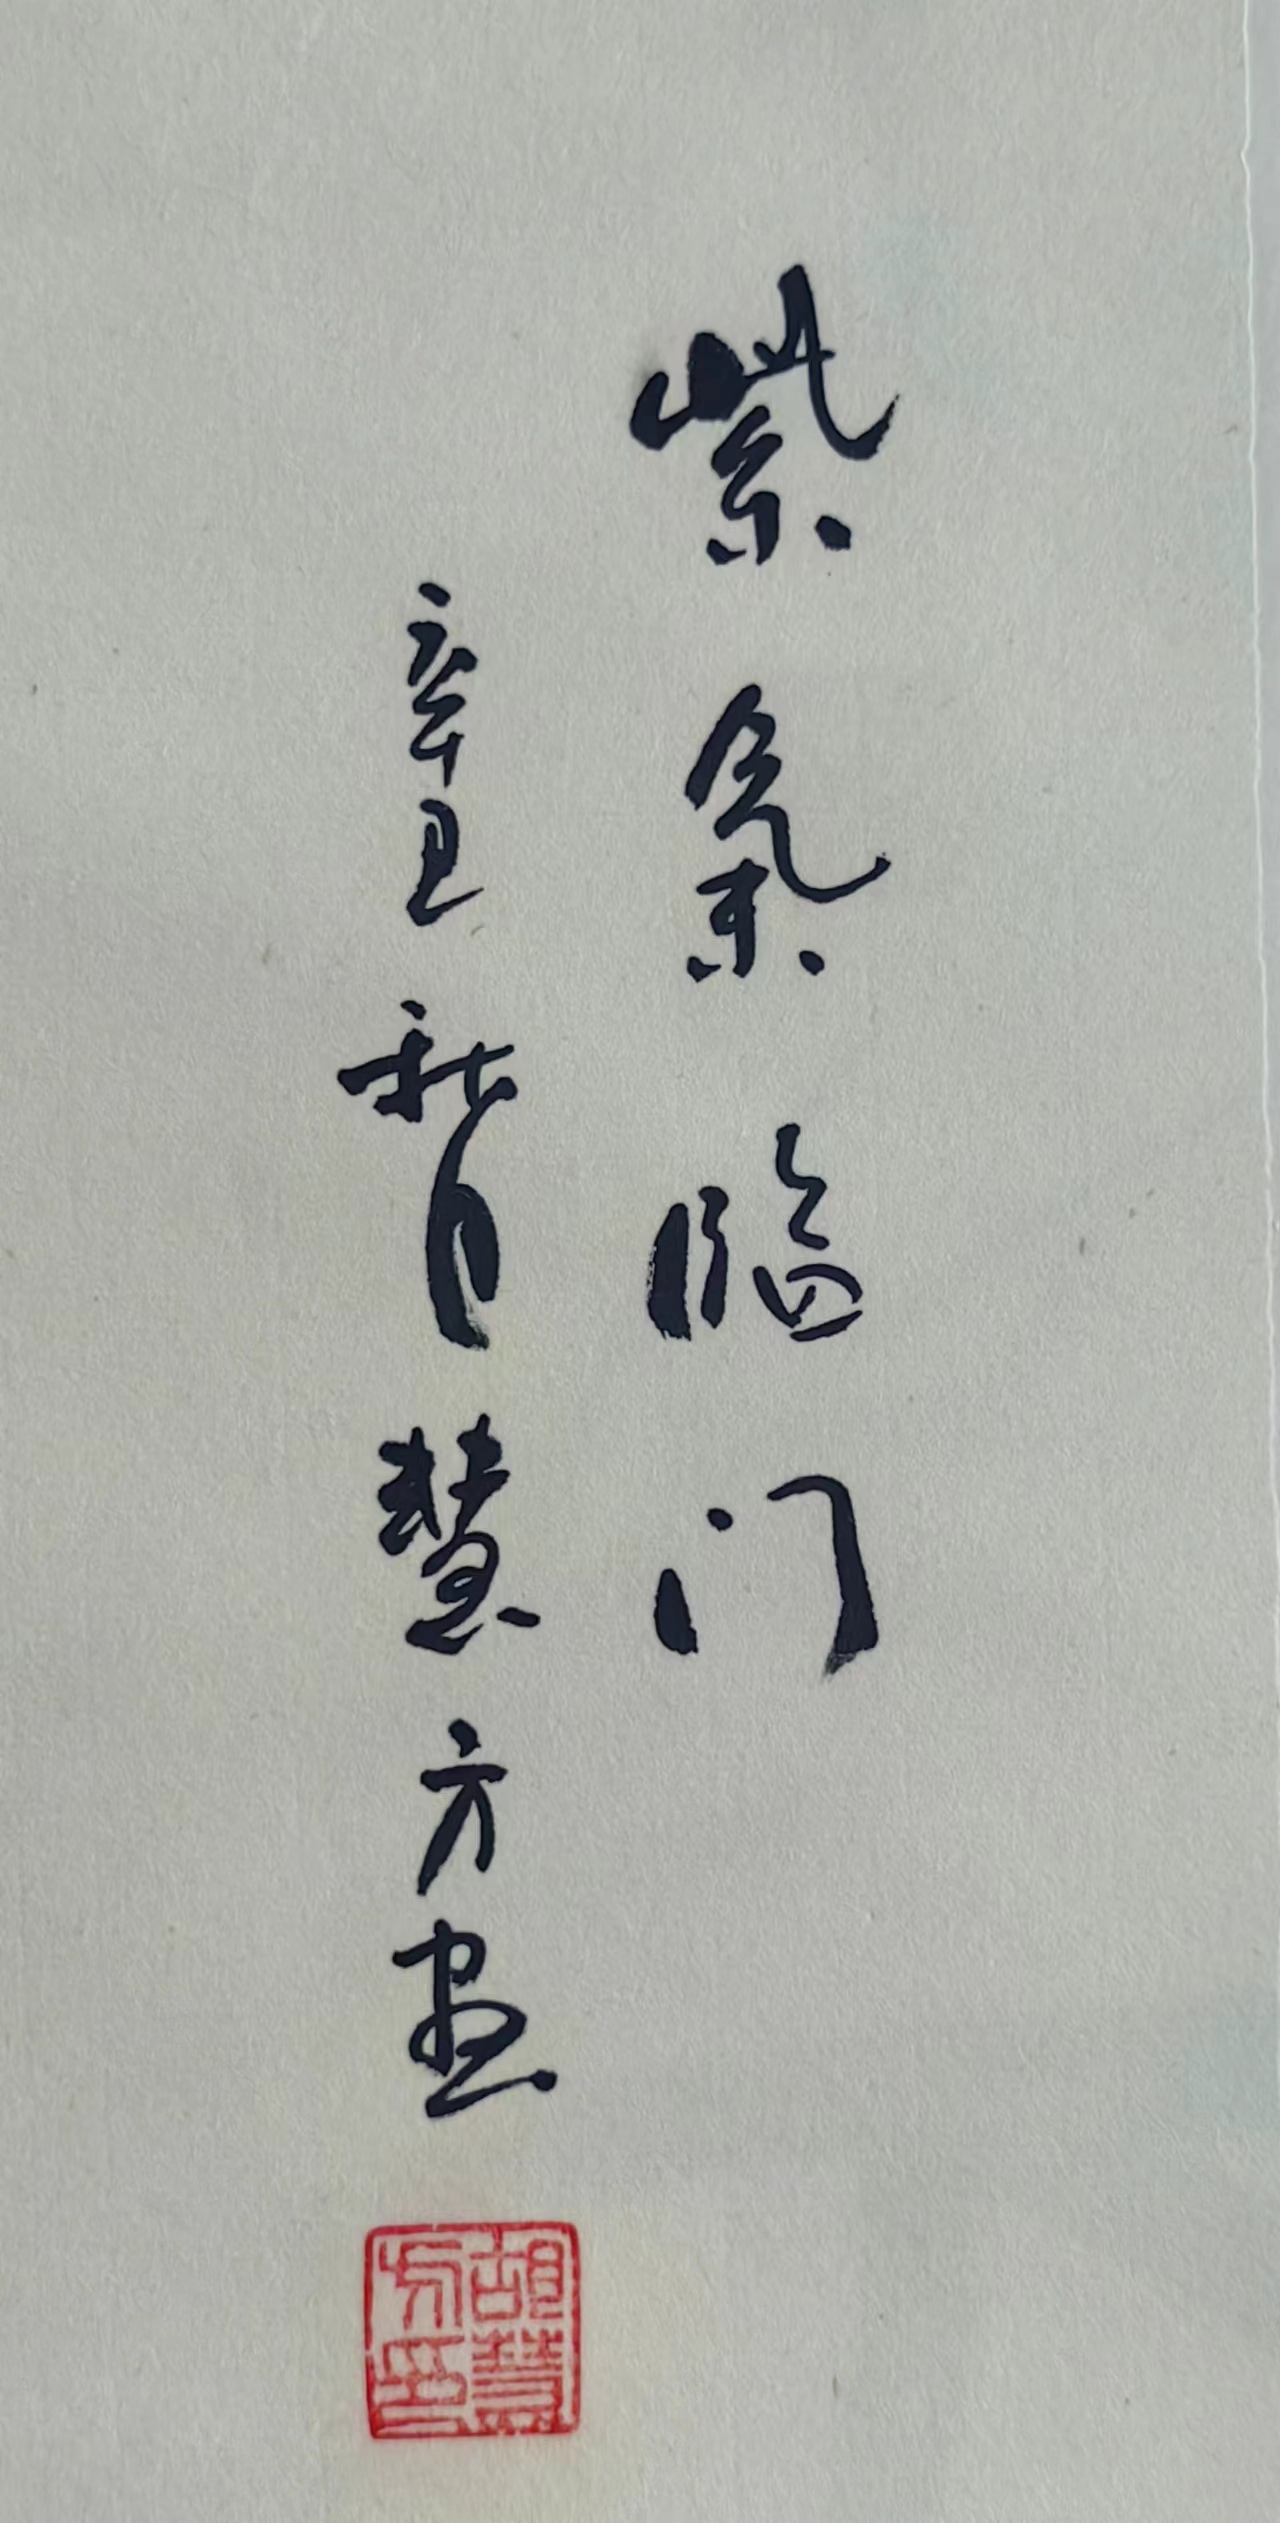 紫氣臨门
辛丑秋月慧方画
胡慧方印